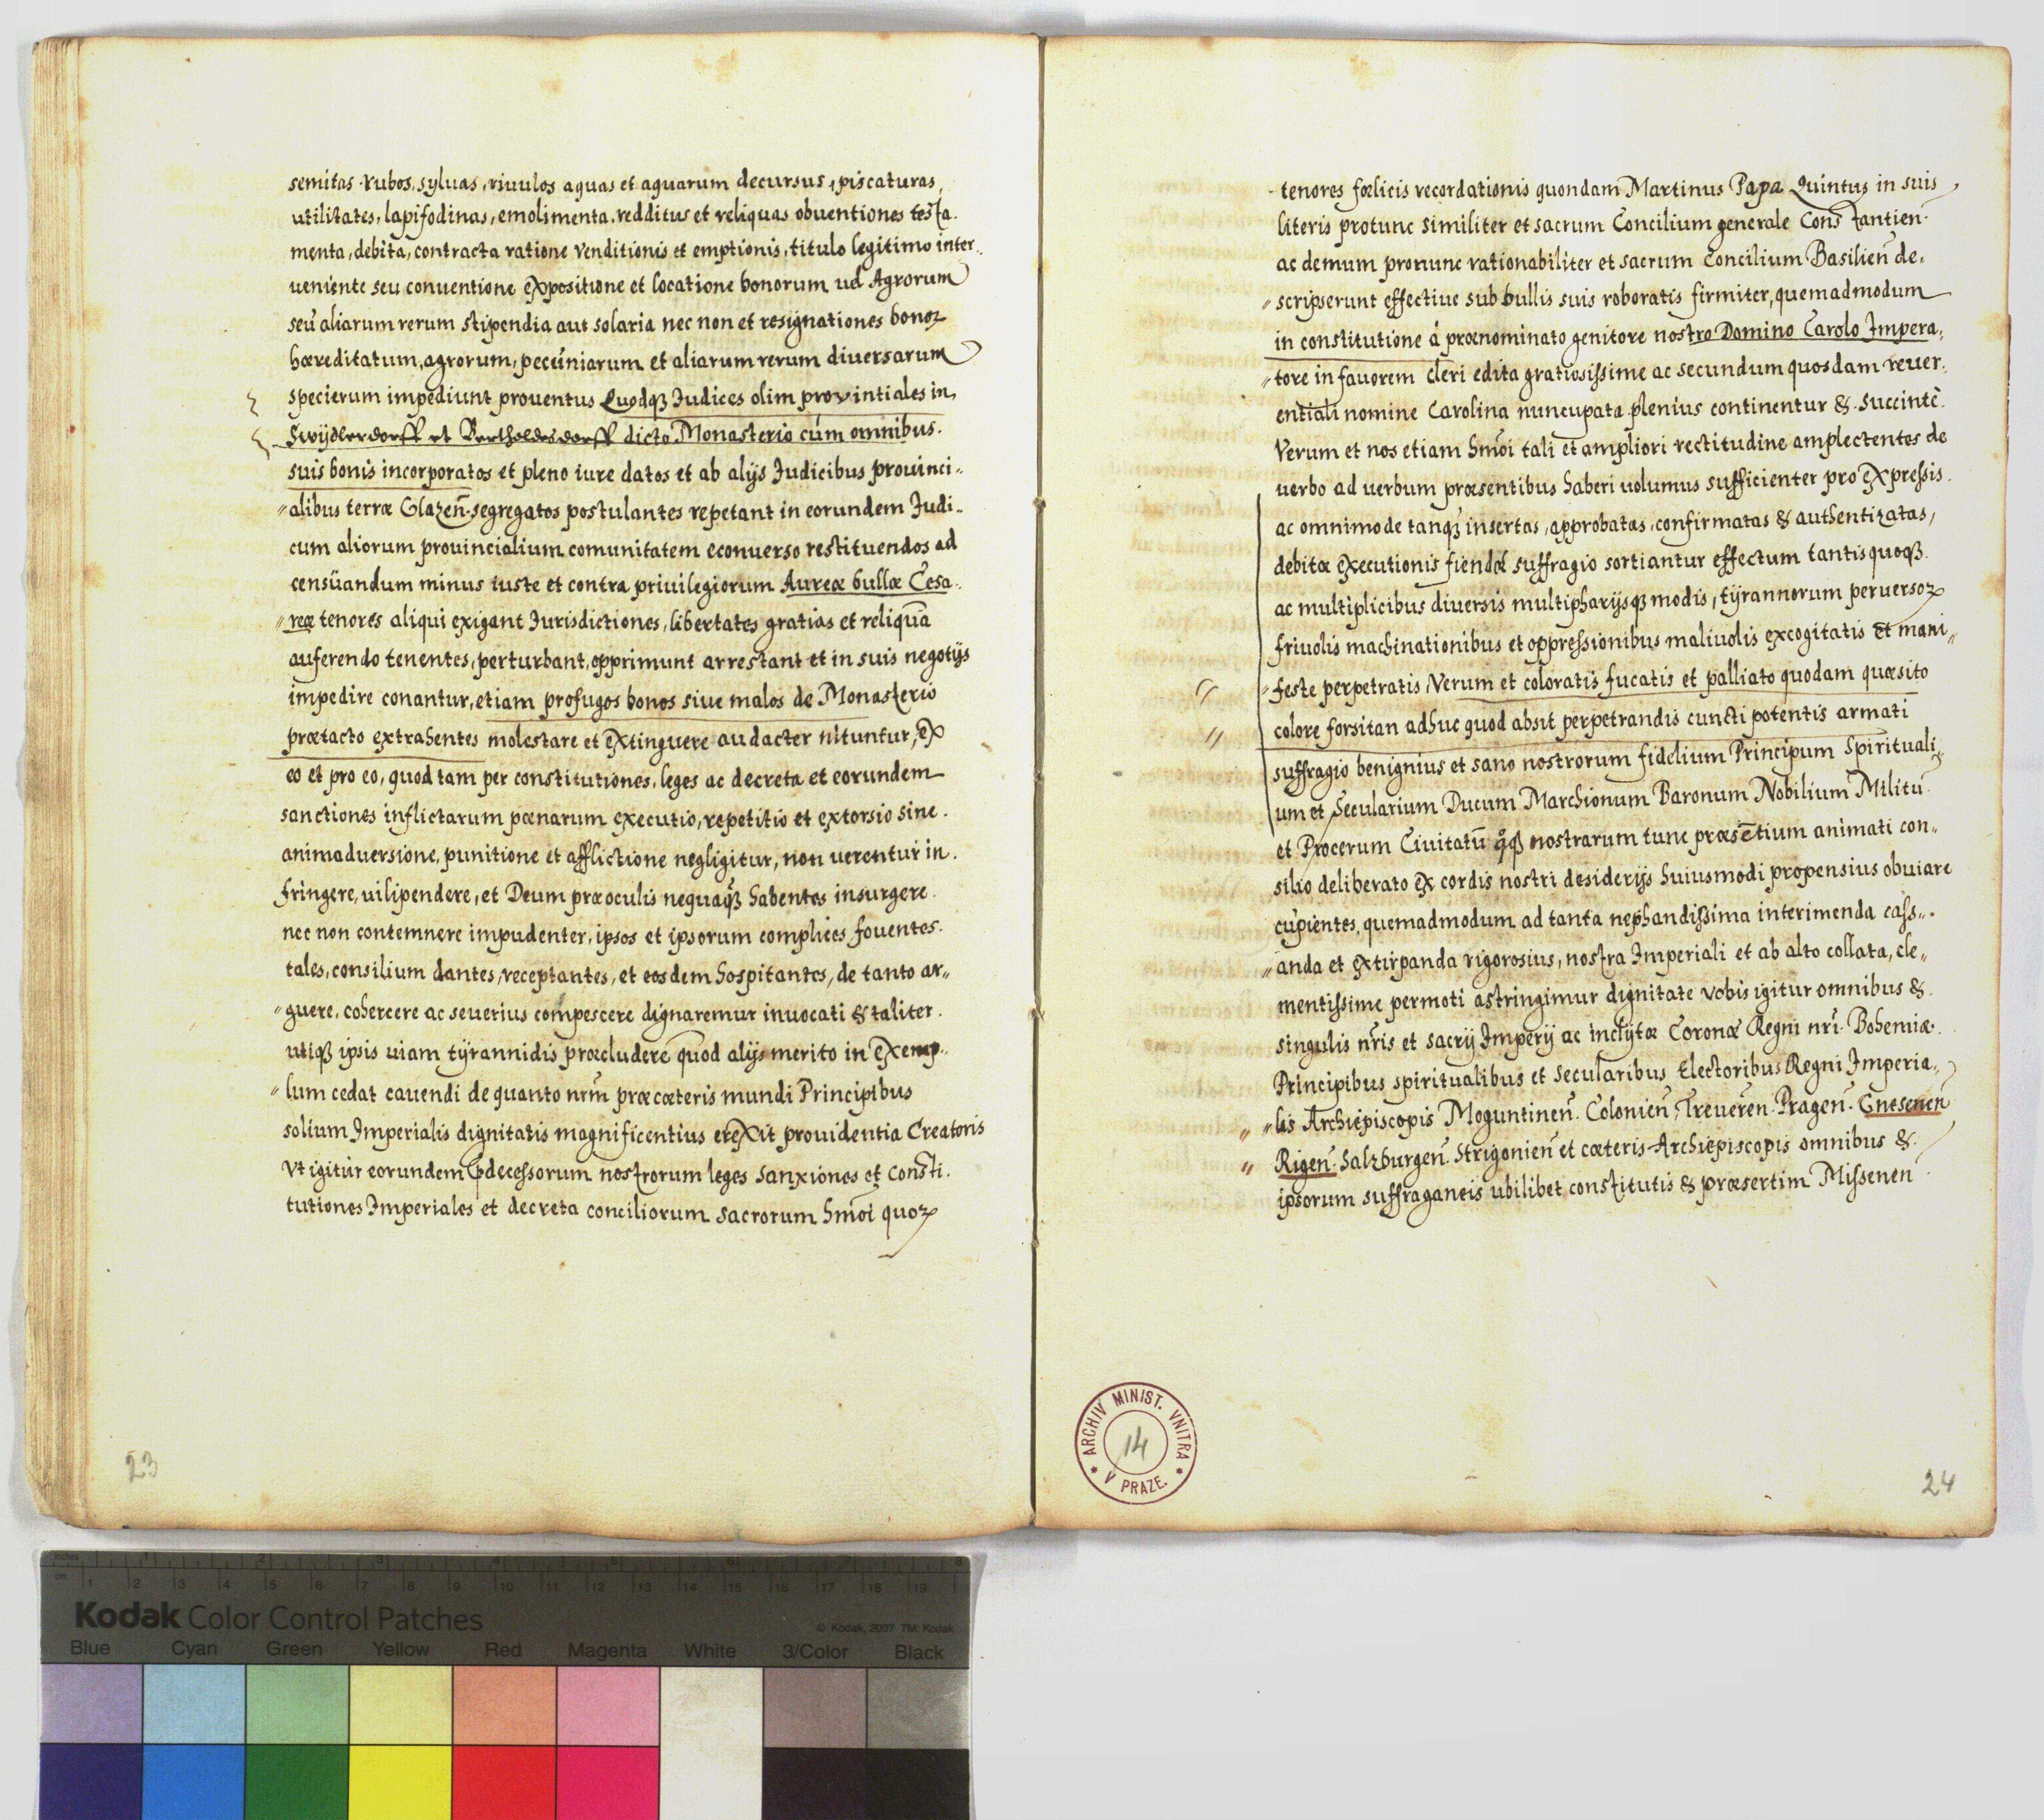 semitas rubos, syluas, riuulos aquas et aquarum decursus, piscaturas,
utilitates, lapifodinas, emolimenta, redditus et reliquas obuentiones testa-
menta, debita, contracta ratione venditionis et emptionis, titulo legitimo inter-
ueniente seu conuentione expositione et locatione bonorum uel Agrorum
seu aliarum rerum stipendia aut solaria nec non et resignationes bonoꝝ
hæreditatum, agrorum, pecuniarum et aliarum rerum diuersarum
specierum impediunt prouentus Quodqꝫ Judices olim provintiales in
Swijdlerdorff et Bertholdesdorff dicto Monasterio cum omnibus.
suis bonis incorporatos et pleno iure datos et ab alijs Judicibus prouinci-
„alibus terræ Glazen̄. segregatos postulantes repetant in eorundem Judi-
cum aliorum prouincialium comunitatem econuerso restituendos ad
censüandum minus iuste et contra priuilegiorum Aureæ bullæ Cesa-
„reæ tenores aliqui exigant Jurisdictiones, libertates gratias et reliquā
auferendo tenentes, perturbant, opprimunt arrestant et in suis negotijs
impedire conantur, etiam profugos bonos siue malos de Monasterio
prætacto extrahentes molestare et extinguere audacter nituntur, ex
eo et pro eo, quod tam per constitutiones, leges ac decreta et eorundem
sanctiones inflictarum pœnarum executio, repetitio et extorsio sine.
animaduersione, punitione et afflictione negligitur, non uerentur in.
fringere, uilipendere, et Deum præ oculis nequaqꝫ habentes insurgere.
nec non contemnere impudenter, ipsos et ipsorum complices fouentes.
tales, consilium dantes, receptantes, et eosdem hospitantes, de tanto ar„
„guere, cohercere ac seuerius compescere dignaremur inuocati & taliter.
utiqꝫ ipsis uiam tÿrannidis præcludere quod alijs merito in exemp„
„lum cedat cauendi de quanto nrm̄ præ cæteris mundi Principibus
solium Imperialis dignitatis magnificentius erexit prouidentia Creatoris
Vt igitur eorundem p̄decessorum nostrorum leges sanxiones et consti.
tutiones Imperiales et decreta conciliorum sacrorum hm̄oi quoꝝ
23
tenores fœlicis recordationis quondam Martinus Papa Quintus in suis
literis protunc similiter et sacrum Concilium generale Constantien.
ac demum pronunc rationabiliter et sacrum Concilium Basilien̄ de,
„scripserunt effectiue sub bullis suis roboratis firmiter, quemadmodum
in constitutione á prænominato genitore nostro Domino Carolo Impera,
„tore in fauorem cleri edita gratiosissime ac secundum quosdam reuer,
entiali nomine Carolina nuncupata plenius continentur &. succintè.
Verum et nos etiam hm̄oi tali et ampliori rectitudine amplectentes de
uerbo ad uerbum præsentibus haberi uolumus sufficienter pro expressis.
ac omnimode tanqꝫ insertas, approbatas, confirmatas & authentizatas,
debitæ executionis fiendæ suffragio sortiantur effectum tantisquoqꝫ
ac multiplicibus diuersis multipharijsqꝫ modis, tÿrannorum peruersoꝝ
friuolis machinationibus et oppressionibus maliuolis excogitatis et mani„
„feste perpetratis Verum et coloratis fucatis et palliato quodam quæsito
colore forsitan adhuc quod absit perpetrandis cuncti potentis armati
suffragio benignius et sano nostrorum fidelium Principum Spirituali„
um et Secularium Ducum Marchionum Baronum Nobilium Militū
et Procerum Ciuitatū nostrarum tunc præsētium animati con„
silio deliberato ex cordis nostri desiderijs huiusmodi propensius obuiare
cupientes, quemadmodum ad tanta nephandissima interimenda cass„
„anda et extirpanda rigorosius, nostra Imperiali et ab alto collata, cle„
mentissime permoti astringimur dignitate vobis igitur omnibus &.
singulis nr̄is et sacrij Imperij ac inclÿtæ Coronæ Regni nrī. Bohemiæ.
Principibus spiritualibus et secularibus Electoribus Regni Imperia„
„lis Archiepiscopis Moguntinen̄. Colonien̄, Treueren̄. Pragen̄. Gnesenen̄
Rigen̄. Salzburgen̄. Strigonien̄ et cæteris Archiepiscopis omnibus &.
ipsorum suffraganeis ubilibet constitutis & præsertim Missenen
ARCHIV MINIST. VNITRA V PRAZE.
14
24
Kodak Color Control Patches
© Kodak, 2007 TM: Kodak
inches 1 2 3 4 5 6 7 8
cm 1 2 3 4 5 6 7 8 9 10 11 12 13 14 15 16 17 18 19
Blue Cyan Green Yellow Red Magenta White 3/Color Black